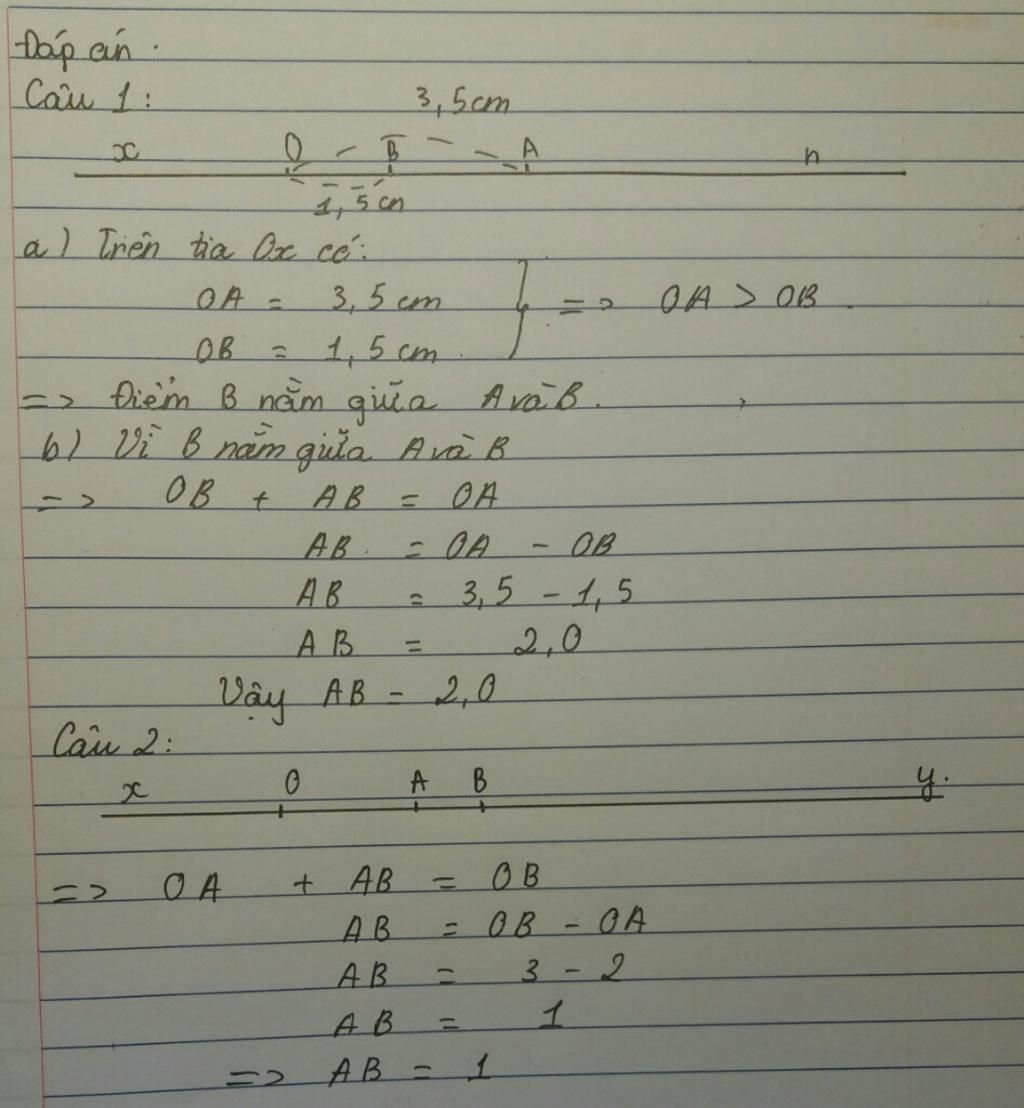 Đáp án.
Câu 1:
3,5cm
x O B A n
1,5cm
a) Trên tia Ox có:
OA = 3,5cm
OB = 1,5cm.
} => OA > OB.
=> Điểm B nằm giữa A và B.
b) Vì B nằm giữa A và B
=> OB + AB = OA
AB = OA - OB
AB = 3,5 - 1,5
AB = 2,0
Vậy AB = 2,0
Câu 2:
x O A B y.
=> OA + AB = OB
AB = OB - OA
AB = 3 - 2
AB = 1
=> AB = 1